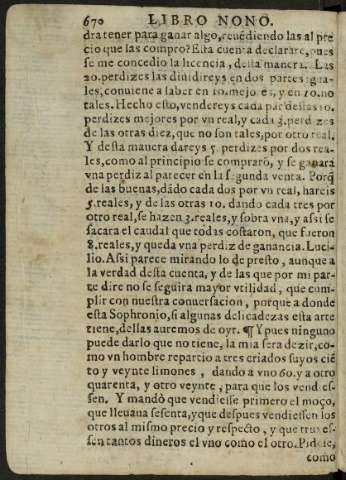 670 LIBRO NONO.
dra tener para ganar algo, reuẽdiendo las al pre
cio que las compro? Esta cuenta declarare, pues
se me concedio la licencia, desta manera. Las
20. perdizes las diuidireys en dos partes igua-
les, conuiene a saber en 10. mejores, y en 10. no
tales. Hecho esto, vendereys cada par destas 10.
perdizes mejores por vn real, y cada 3. perdizes
de las otras diez, que no son tales, por otro real.
Y desta manera dareys 5. perdizes por dos rea-
les, como al principio se comprarõ, y se ganará
vna perdiz al parecer en la segunda venta. Porq̃
de las buenas, dãdo cada dos por vn real, hareis
5. reales, y de las otras 10. dando cada tres por
otro real, se hazen 3. reales, y sobra vna, y assi se
sacara el caudal que todas costaron, que fueron
8. reales, y queda vna perdiz de ganancia. Luci-
lio. Assi parece mirando lo de presto, aunque a
la verdad desta cuenta, y de las que por mi par-
te dire no se seguira mayor vtilidad, que cum-
plir con nuestra conuersacion, porque a donde
esta Sophronio, si algunas delicadezas esta arte
tiene, dellas auremos de oyr. ¶ Y pues ninguno
puede darlo que no tiene, la mia sera dezir, co-
mo vn hombre repartio a tres criados suyos ciẽ
to y veynte limones, dando a vno 60. y a otro
quarenta, y otro veynte, para que los vendies-
sen. Y mandò que vendiesse primero el moço,
que lleuaua sesenta, y que despues vendiessen los
otros al mismo precio y respecto, y que truxes-
sen tantos dineros el vno como el otro. Pidese,
como